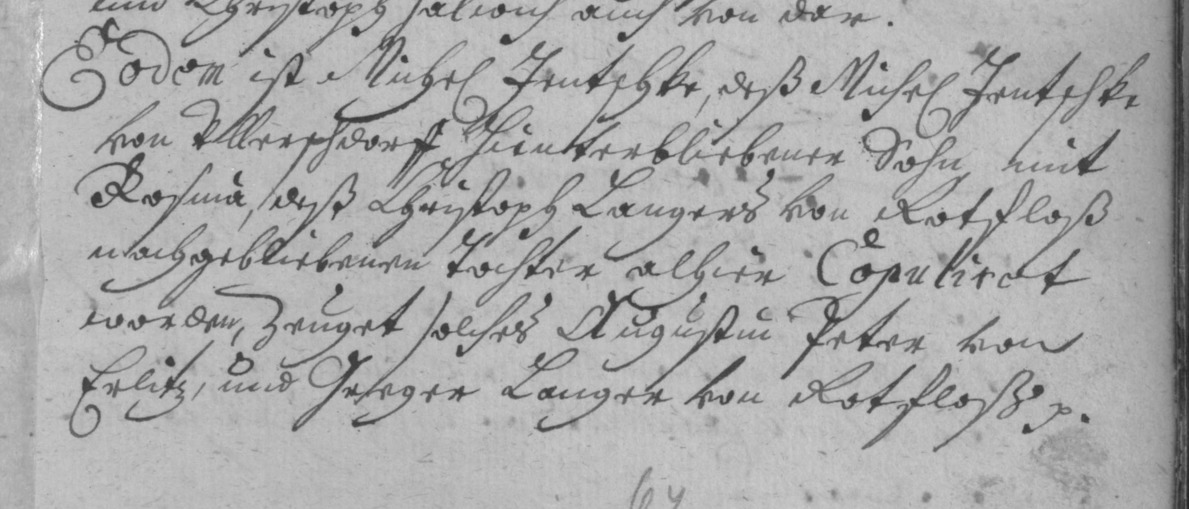 und Christoph auch von dar.
Eodem ist Michel Jentschke, deß Michel Jentschke
von Ullerschdorff hienterbliebener Sohn, mit
Rosina, deß Christoph Langers von Rotfloß
nachgebliebenen Tochter alhier Copulirat
worden, Zeuget solches Augustin Peter von
Erlitz, und Greger Langer von Rotfloß p.
64